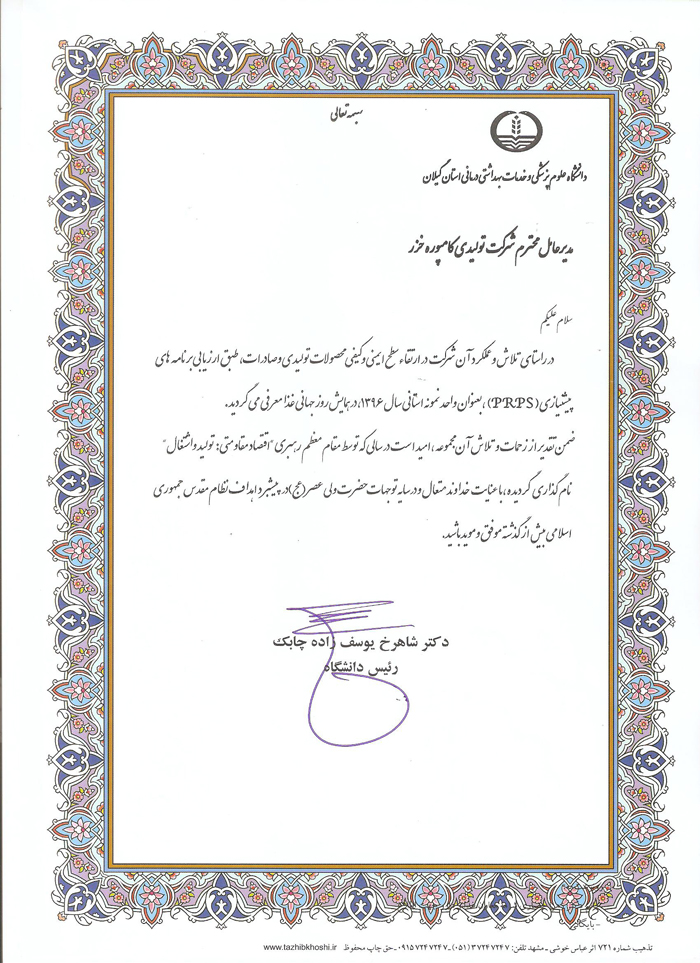 بسمه تعالی
دانشگاه علوم پزشکی و خدمات بهداشتی درمانی استان گیلان
مدیرعامل محترم شرکت تولیدی کامپوره خزر
سلام علیکم
در راستای تلاش و عملکرد آن شرکت در ارتقاء سطح ایمنی و کیفی محصولات تولیدی و صادرات، طبق ارزیابی برنامه های
پیشنیازی (PRPS)، بعنوان واحد نمونه استانی سال ۱۳۹۶، در همایش روز جهانی غذا معرفی می گردید.
ضمن تقدیر از زحمات و تلاش آن مجموعه، امید است در سالی که توسط مقام معظم رهبری "اقتصاد مقاومتی: تولید و اشتغال"
نام گذاری گردیده، با عنایت خداوند متعال و در سایه توجهات حضرت ولی عصر (عج) در پیشبرد اهداف نظام مقدس جمهوری
اسلامی بیش از گذشته موفق و موید باشید.
دکتر شاهرخ یوسف زاده چابک
رئیس دانشگاه
- بایگانی
تذهیب شماره ۷۲۱ اثر عباس خوشی ـ مشهد تلفن: ۳۷۲۴۷۲۴۷ (۰۵۱) ـ ۰۹۱۵۷۲۴۷۲۴۷ ـ حق چاپ محفوظ www.tazhibkhoshi.ir